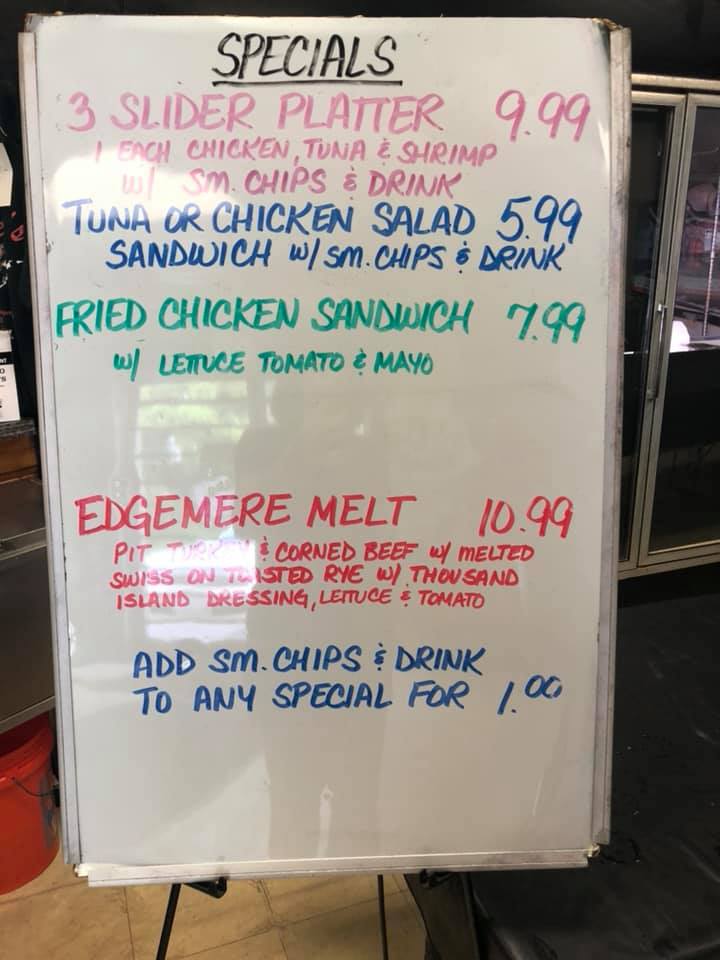 SPECIALS
3 SLIDER PLATTER 9.99
1 EACH CHICKEN, TUNA & SHRIMP
W/ SM. CHIPS & DRINK
TUNA OR CHICKEN SALAD 5.99
SANDWICH W/ SM. CHIPS & DRINK
FRIED CHICKEN SANDWICH 7.99
W/ LETTUCE TOMATO & MAYO
EDGEMERE MELT 10.99
PIT TURKEY & CORNED BEEF W/ MELTED
SWISS ON TOASTED RYE W/ THOUSAND
ISLAND DRESSING, LETTUCE & TOMATO
ADD SM. CHIPS & DRINK
TO ANY SPECIAL FOR 1.00